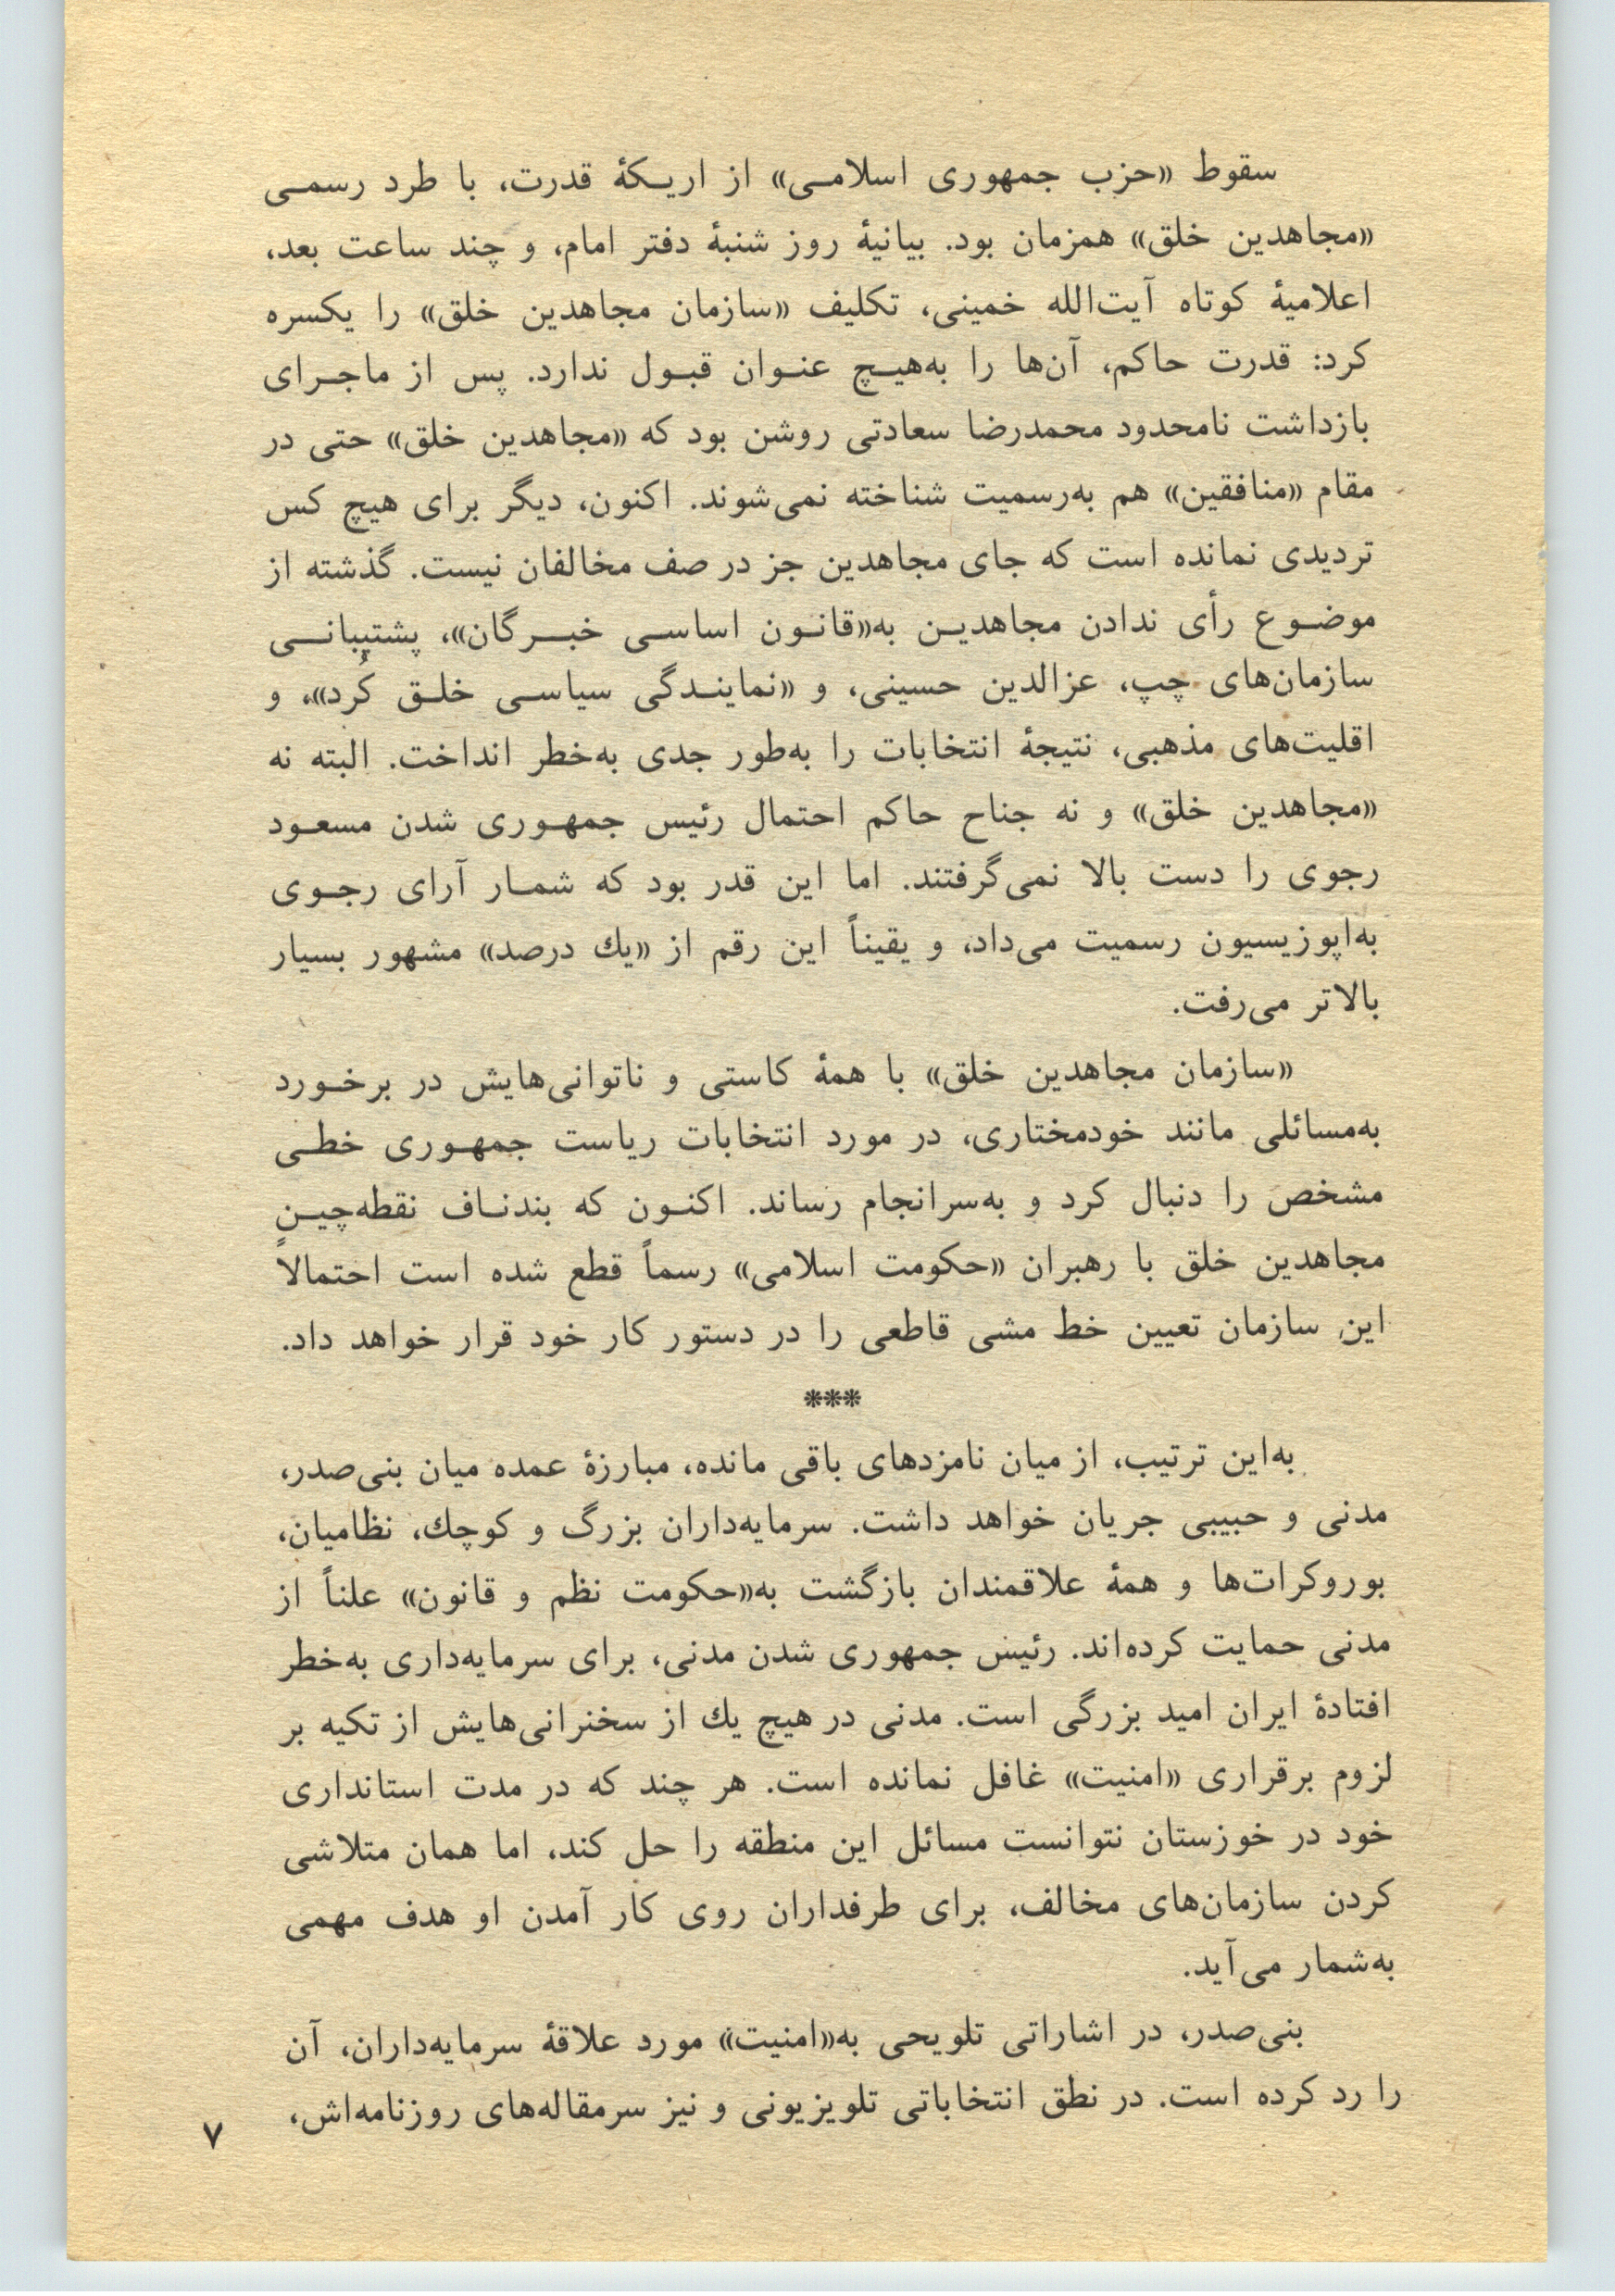 سقوط «حزب جمهوری اسلامی» از اریکهٔ قدرت، با طرد رسمی
«مجاهدین خلق» همزمان بود. بیانیهٔ روز شنبهٔ دفتر امام، و چند ساعت بعد،
اعلامیهٔ کوتاه آیت‌الله خمینی، تکلیف «سازمان مجاهدین خلق» را یکسره
کرد: قدرت حاکم، آن‌ها را به‌هیچ عنوان قبول ندارد. پس از ماجرای
بازداشت نامحدود محمدرضا سعادتی روشن بود که «مجاهدین خلق» حتی در
مقام «منافقین» هم به‌رسمیت شناخته نمی‌شوند. اکنون، دیگر برای هیچ کس
تردیدی نمانده است که جای مجاهدین جز در صف مخالفان نیست. گذشته از
موضوع رأی ندادن مجاهدین به«قانون اساسی خبرگان»، پشتیبانی
سازمان‌های چپ، عزالدین حسینی، و «نمایندگی سیاسی خلق کُرد»، و
اقلیت‌های مذهبی، نتیجهٔ انتخابات را به‌طور جدی به‌خطر انداخت. البته نه
«مجاهدین خلق» و نه جناح حاکم احتمال رئیس جمهوری شدن مسعود
رجوی را دست بالا نمی‌گرفتند. اما این قدر بود که شمار آرای رجوی
به‌اپوزیسیون رسمیت می‌داد، و یقیناً این رقم از «یك درصد» مشهور بسیار
بالاتر می‌رفت.
«سازمان مجاهدین خلق» با همهٔ کاستی و ناتوانی‌هایش در برخورد
به‌مسائلی مانند خودمختاری، در مورد انتخابات ریاست جمهوری خطی
مشخص را دنبال کرد و به‌سرانجام رساند. اکنون که بندناف نقطه‌چینِ
مجاهدین خلق با رهبران «حکومت اسلامی» رسماً قطع شده است احتمالاً
این سازمان تعیین خط مشی قاطعی را در دستور کار خود قرار خواهد داد.
***
به‌این ترتیب، از میان نامزدهای باقی مانده، مبارزهٔ عمده میان بنی‌صدر،
مدنی و حبیبی جریان خواهد داشت. سرمایه‌داران بزرگ و کوچك، نظامیان،
بوروکرات‌ها و همهٔ علاقمندان بازگشت به«حکومت نظم و قانون» علناً از
مدنی حمایت کرده‌اند. رئیس جمهوری شدن مدنی، برای سرمایه‌داری به‌خطر
افتادهٔ ایران امید بزرگی است. مدنی در هیچ یك از سخنرانی‌هایش از تکیه بر
لزوم برقراری «امنیت» غافل نمانده است. هر چند که در مدت استانداری
خود در خوزستان نتوانست مسائل این منطقه را حل کند، اما همان متلاشی
کردن سازمان‌های مخالف، برای طرفداران روی کار آمدن او هدف مهمی
به‌شمار می‌آید.
بنی‌صدر، در اشاراتی تلویحی به«امنیت» مورد علاقهٔ سرمایه‌داران، آن
را رد کرده است. در نطق انتخاباتی تلویزیونی و نیز سرمقاله‌های روزنامه‌اش،
۷